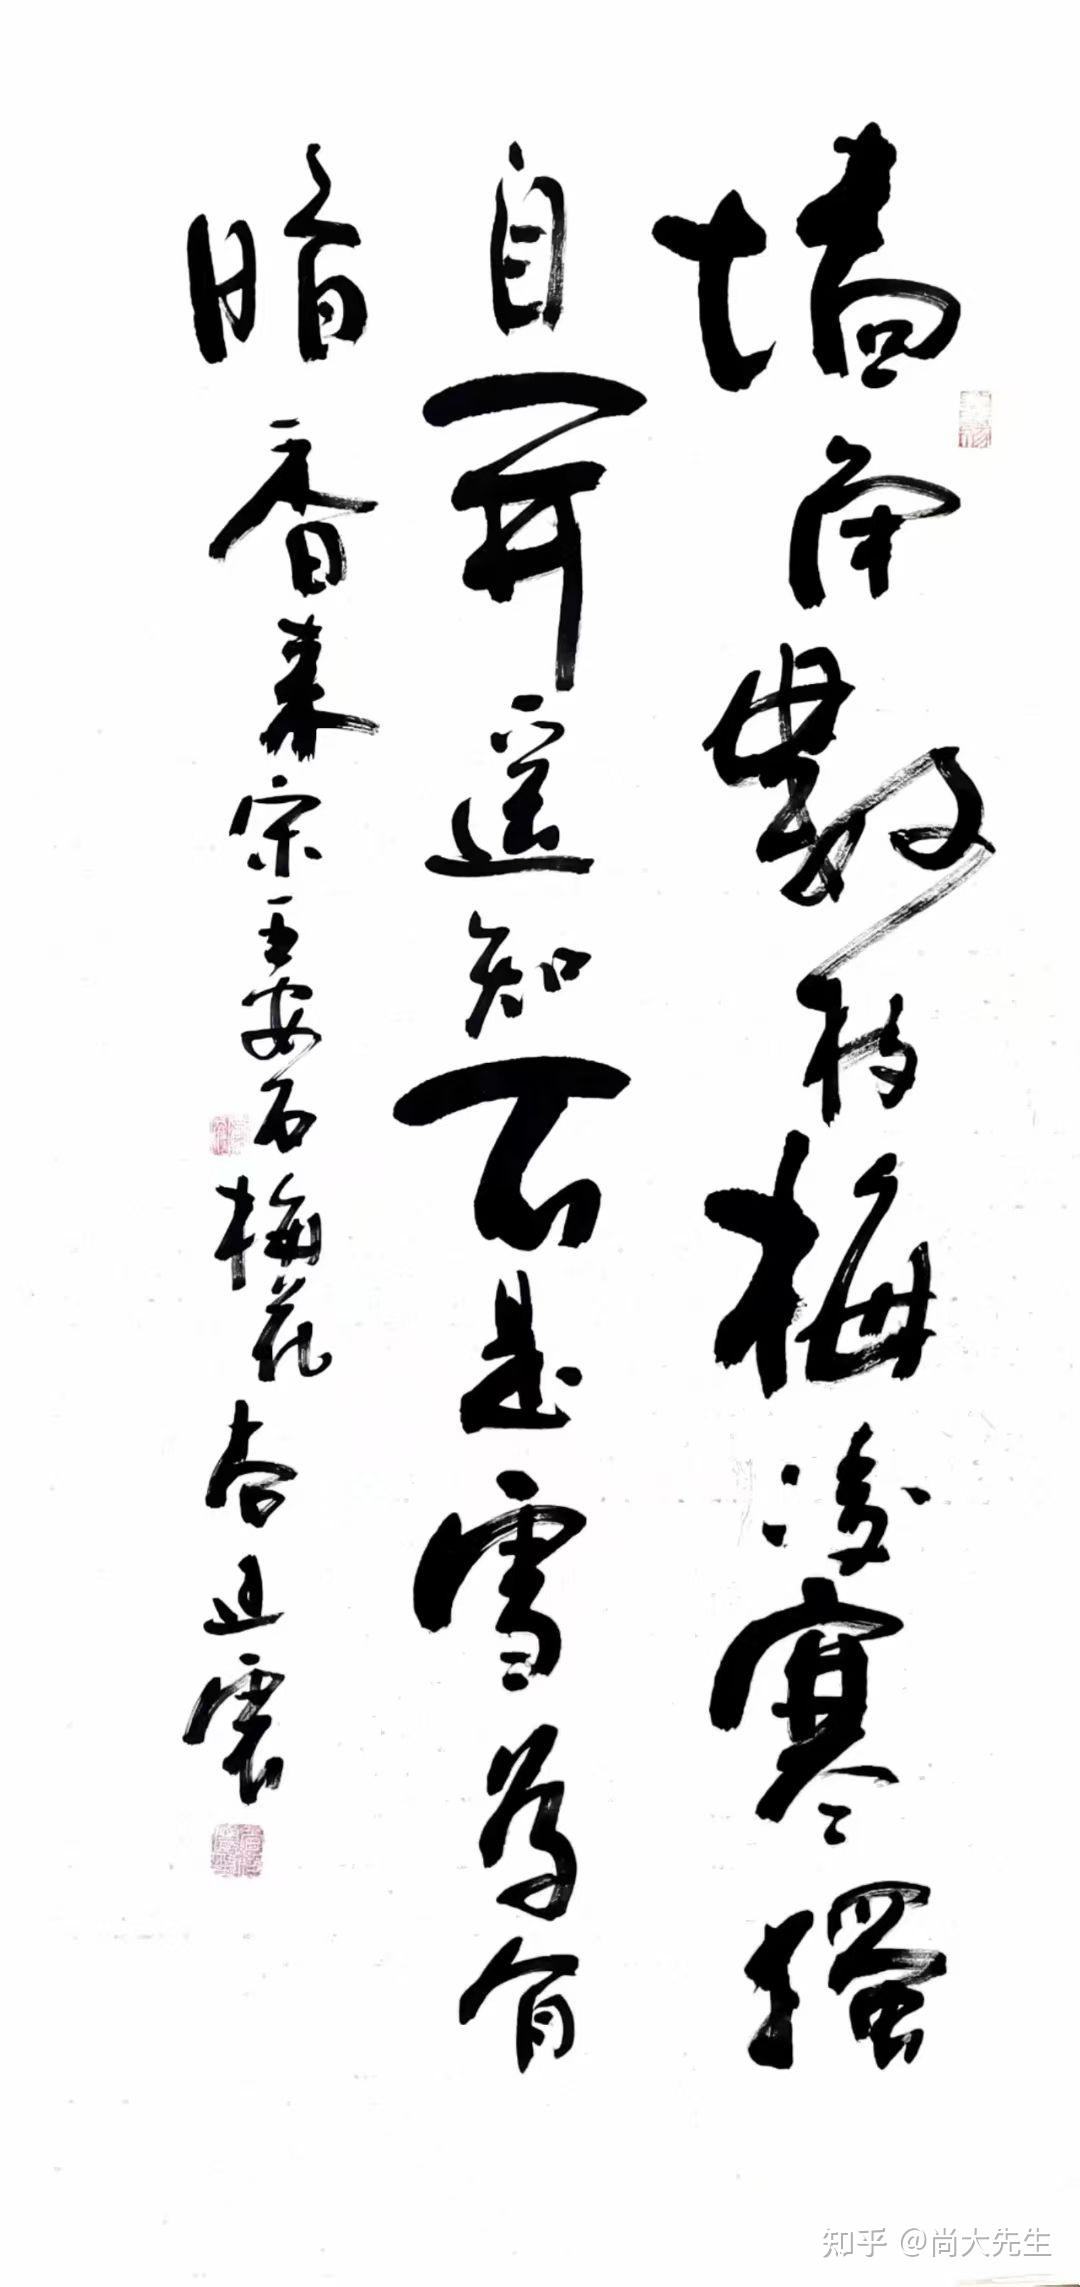 墙角數枝梅凌寒獨
自開遥知不是雪為有
暗香来宋王安石梅花
知乎 @尚大先生